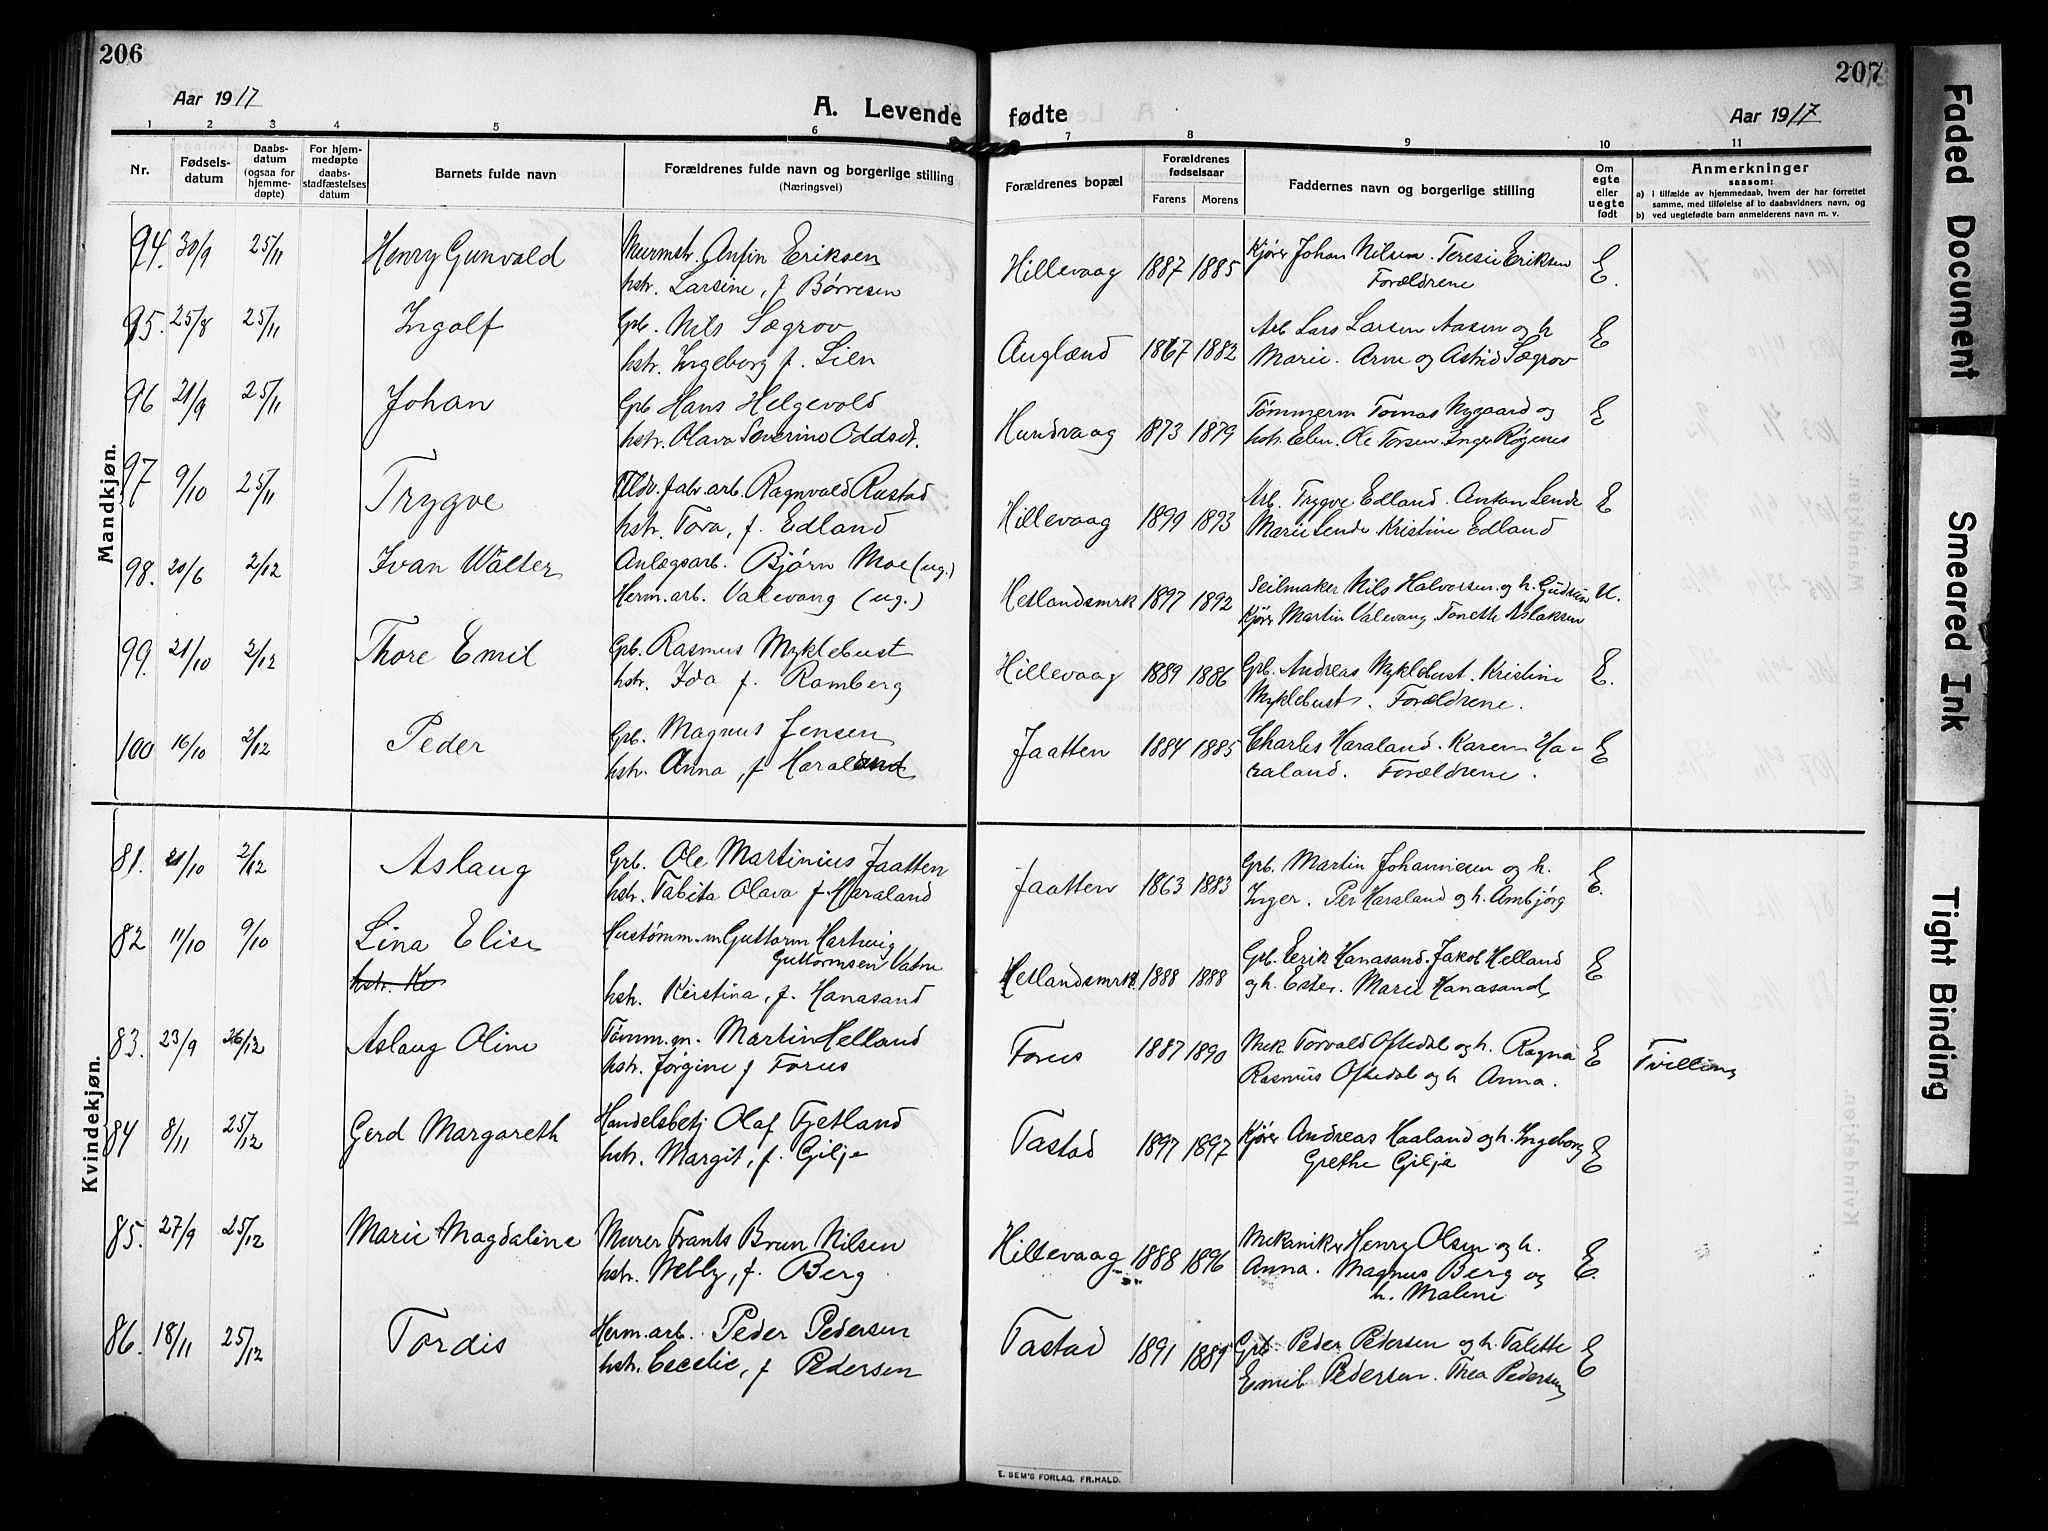 206
Aar 1917
A. Levende
1 2 3 4 5 6
Nr.
Fødsels-
datum
Daabs-
datum
(ogsaa for
hjemme-
døpte)
For hjem-
medøpte
daabs-
stadfæstelses
datum
Barnets fulde navn
Forældrenes fulde navn og borgerlige stilling
(Næringsvei)
Mandkjøn.
94. 30/9 25/11 Henry Gunvald Murmstr. Anfin Eriksen
hstr. Larsine, f Børresen
95. 25/8 25/11 Ingolf Gpb. Nils Sægrov
hstr. Ingeborg f. Lien
96 21/9 25/11 Johan Gpb Hans Helgevold
hstr. Olava Severine Oddsdt.
97 9/10 25/11 Trygve Uldv. fabr. arb. Ragnvald Rustad
hstr. Tora, f. Edland
98. 20/6 2/12 Ivan Walter Anlægsarb. Bjørn Moe (ug.)
Herm. arb. Valevang (ug.)
99. 21/10 2/12 Thore Emil Gpb. Rasmus Myklebust
hstr. Ida f. Ramberg
100 16/10 2/12 Peder Gpb. Magnus Jensen
hstr. Anna, f Haraland
Kvindekjøn.
81. 21/10 2/12 Aslaug Grb. Ole Martinius Jaatten
hstr. Tabita Olava f. Haraland
82 11/10 9/10 Lina Elise Hustømm.m Guttorm Hartvig
Guttormsen Vatne
hstr. Ke
hstr. Kirstina, f. Hanasand
83. 23/9 26/12 Aslaug Oline Tømm.m. Martin Helland
hstr. Jørgine f Forus
84 8/11 25/12 Gerd Margareth Handelsbetj Olaf Tjetland
hstr. Margit, f. Gilje
85. 27/9 25/12 Marie Magdaline Murer Frants Brun Nilsen
hstr. Nelly, f. Berg
86. 18/11 25/12 Tordis Herm. arb. Peder Pedersen
hstr. Cecelie, f Pedersen
207
fødte
Aar 1917
7 8 9 10 11
Forældrenes bopæl
Forældrenes
fødselsaar
Farens Morens
Faddernes navn og borgerlige stilling
Om
egte
eller
uegte
født
Anmerkninger
saasom:
a) i tilfælde av hjemmedaab, hvem der har forrettet
samme, med tilføielse af to daabsvidners navn, og
b) ved uegtefødte barn anmelderens navn m. v.
Hillevaag 1887 1885 Kjører Johan Nilsen. Teresie Eriksen E.
Forældrene
Auglænd 1867 1882 Arb Lars Larsen Aasen og h E
Marie. Arne og Astrid Sægrov
Hundvaag 1873 1879 Tømmerm Tomas Nygaard og E
hstr. Elen. Ole Torsen Inger Røgenes
Hillevaag 1899 1893 Arb. Trygve Edland. Anton Lende E
Marie Lende Kristine Edland
Hetlandsmrk 1897 1892 Seilmaker Nils Halvorsen og h. Gudrun U.
Kjører Martin Valevang. Tonette Aslaksen
Hillevaag 1889 1886 Gpb. Andreas Myklebust. Kristine E.
Myklebust. Forældrene.
Jaatten 1884 1885 Charles Haraland. Karen Ha- E
raland. Forældrene.
Jaatten 1863 1883 Grb. Martin Johannesen og h. E.
Inger. Per Haraland og h. Ambjørg
Hetlandsmrk 1888 1888 Gpb. Eerik Hanasand. Jakob Helland E
og h. Ester. Marie Hanasand
Forus 1887 1890 Mek. Torvald Oftedal og h. Ragna E Tvilling
Rasmus Oftedal og h Anna.
Tastad 1897 1897 Kjører Andreas Haaland og h. Ingeborg E
Grethe Gilje
Hillevaag 1888 1896 Mekaniker Henry Olsen og h. E.
Anna. Magnus Berg og
h. Maline
Tastad 1891 1889 Grb. Peder Pedersen og h. Talette E
Emil Pedersen. Thea Pedersen
E. SEM'S FORLAG, FR.HALD.
Faded Document
Smeared Ink
Tight Binding